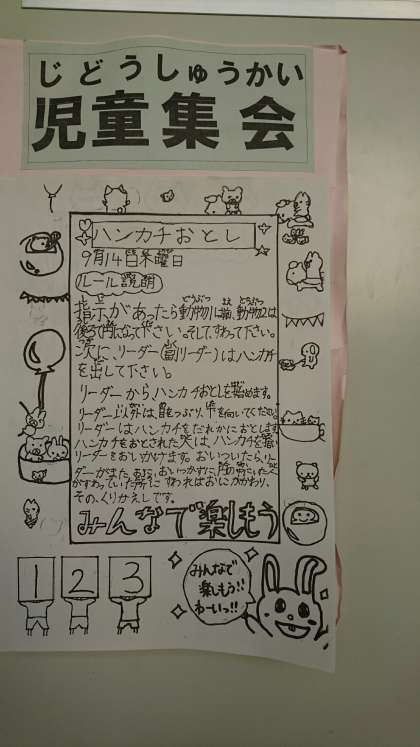 じどうしゅうかい
児童集会
ハンカチおとし
9月14日木曜日
ルール説明
指示があったら動物1は前、動物2は
後ろで円になって下さい。そして、すわって下さい。
次に、リーダー(副リーダー)はハンカチ
を出して下さい。
リーダーから、ハンカチおとしを始めます。
リーダー以外は目をつぶり、下を向いてください。
リーダーはハンカチをだれかにおとします。
ハンカチをおとされた人は、ハンカチを
リーダーをおいかけます。おいついたら、リー
ダーがまた、おに。おいつかずに
がすわっていた所に すわればおにがかわり、
その、くりかえしです。
みんなで楽しもう
1 2 3
みんなで
楽しもう!!
わーいっ!!